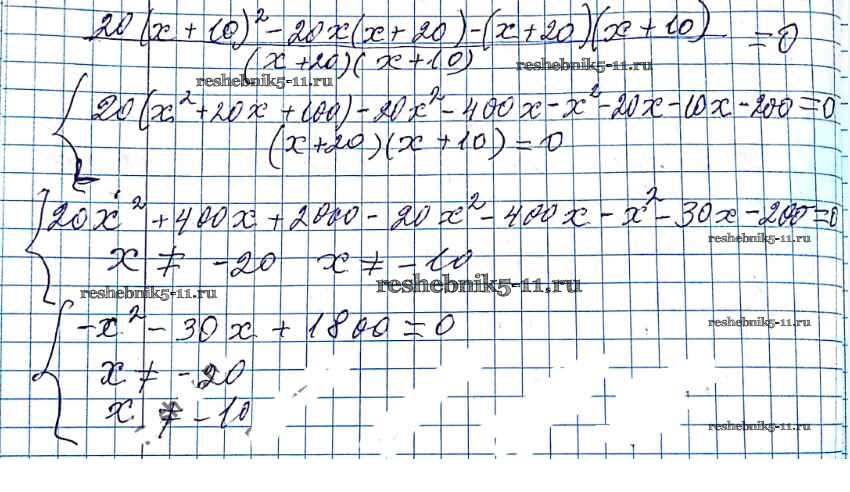 20(x+10)² - 20x(x+20) - (x+20)(x+10)
= 0
(x+20)(x+10)
reshebnik5-11.ru reshebnik5-11.ru
20(x²+20x+100) - 20x² - 400x - x² - 20x - 10x - 200 = 0
(x+20)(x+10) = 0
20x² + 400x + 2000 - 20x² - 400x - x² - 30x - 200 = 0
reshebnik5-11.ru
x ≠ -20 x ≠ -10
reshebnik5-11.ru reshebnik5-11.ru
-x² - 30x + 1800 = 0
reshebnik5-11.ru
x ≠ -20
x ≠ -10
reshebnik5-11.ru